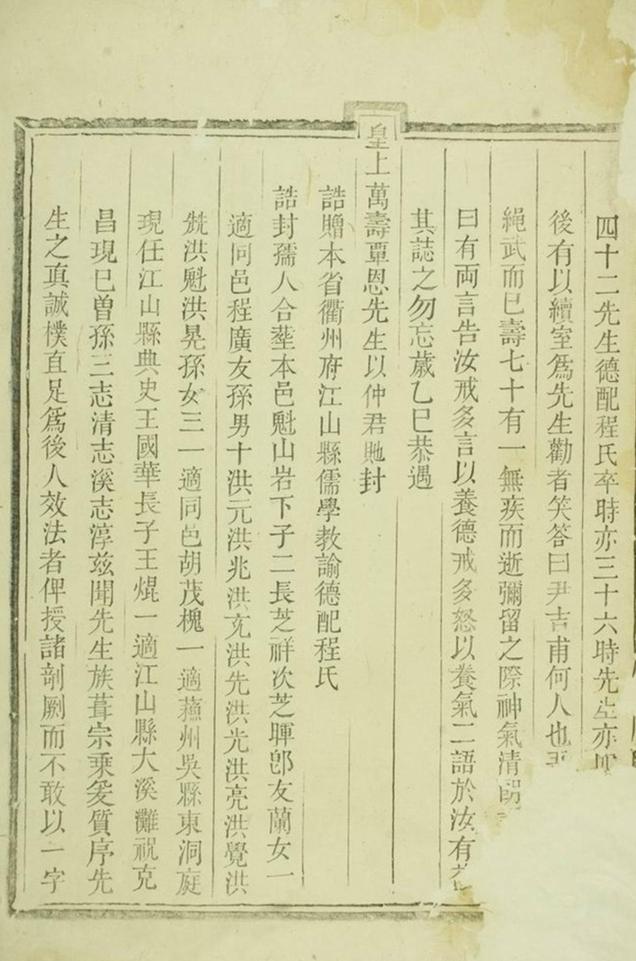 四十二先生德配程氏卒時亦三十六時先生亦
後有以續室爲先生勸者笑答曰尹吉甫何人也
繩武而已壽七十有一無疾而逝彌留之際神氣清
曰有両言告汝戒多言以養德戒多怒以養氣二語於汝有
其誌之勿忘嵗乙巳恭遇
皇上萬壽覃恩先生以仲君貤封
誥贈本省衢州府江山縣儒學教諭德配程氏
誥封孺人合塟本邑魁山岩下子二長芝祥次芝暉卽友蘭女一
適同邑程廣友孫男十洪元洪兆洪充洪先洪光洪亮洪覺洪
兟洪魁洪晃孫女三一適同邑胡茂槐一適蘓州吳縣東洞庭
現任江山縣典史王國華長子王焜一適江山縣大溪灘祝克
昌現已曾孫三志清志溪志淳兹聞先生族葺宗乘爰質序先
生之真誠樸直足爲後人效法者俾授諸剞劂而不敢以一字